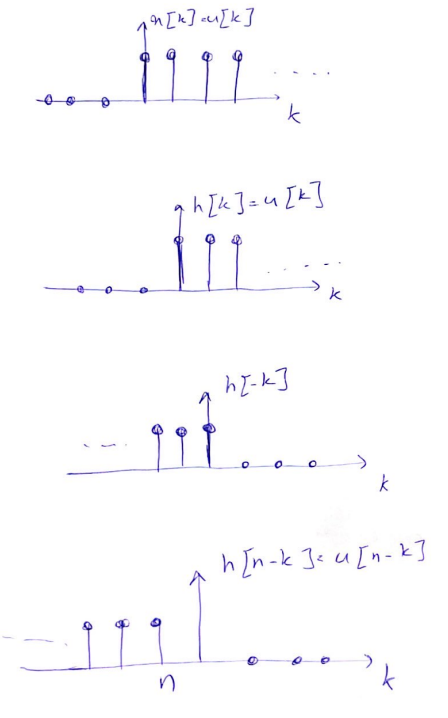 x[k]=u[k]
k
h[k]=u[k]
k
h[-k]
k
h[n-k]=u[n-k]
n
k